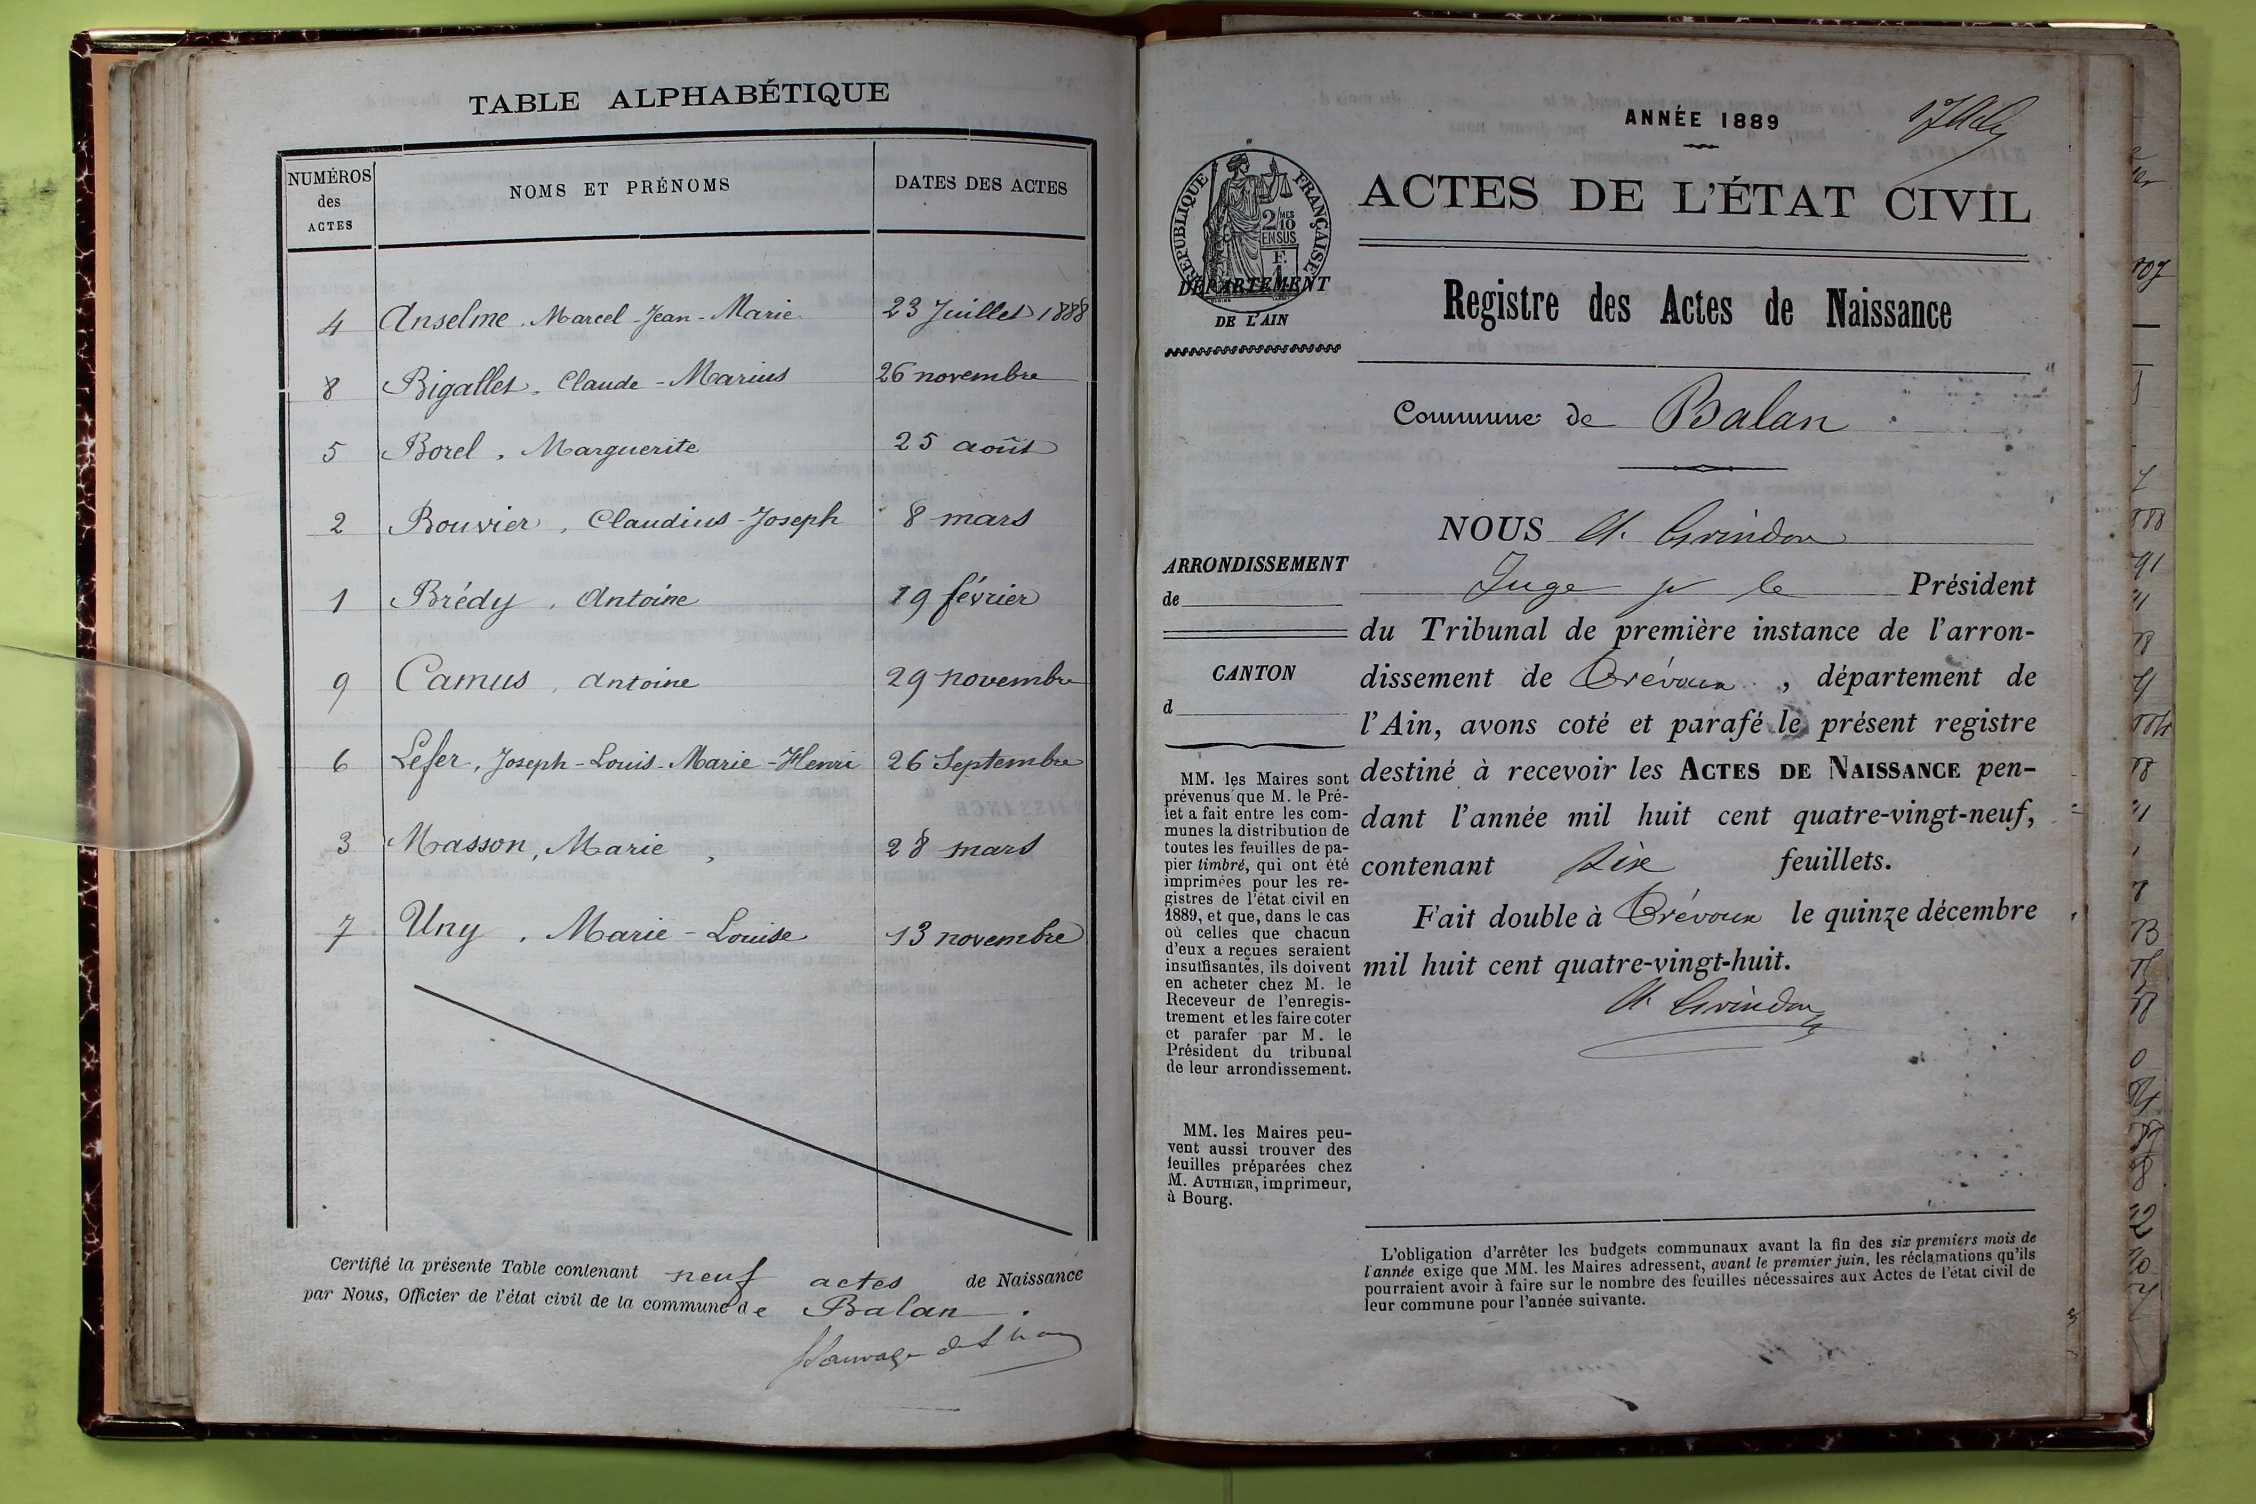 TABLE ALPHABÉTIQUE
NUMÉROS des ACTES NOMS ET PRÉNOMS DATES DES ACTES
4 Anselme, Marcel-Jean-Marie 23 Juillet 1888
8 Bigallet, Claude-Marius 26 novembre
5 Borel, Marguerite 25 août
2 Bouvier, Claudius-Joseph 8 mars
1 Brédy, Antoine 19 février
9 Camus, Antoine 29 novembre
6 Lefer, Joseph-Louis-Marie-Henri 26 Septembre
3 Masson, Marie, 28 mars
7 Uny, Marie-Louise 13 novembre
Certifié la présente Table contenant neuf actes de Naissance
par Nous, Officier de l'état civil de la commune de Balan.
ANNÉE 1889
RÉPUBLIQUE FRANÇAISE
2/10 MES
EN SUS
F.
1
DÉPARTEMENT
DE L'AIN
ACTES DE L'ÉTAT CIVIL
Registre des Actes de Naissance
Commune de Balan
ARRONDISSEMENT
de
CANTON
d
MM. les Maires sont
prévenus que M. le Pré-
fet a fait entre les com-
munes la distribution de
toutes les feuilles de pa-
pier timbré, qui ont été
imprimées pour les re-
gistres de l'état civil en
1889, et que, dans le cas
où celles que chacun
d'eux a reçues seraient
insuffisantes, ils doivent
en acheter chez M. le
Receveur de l'enregis-
trement et les faire coter
et parafer par M. le
Président du tribunal
de leur arrondissement.
MM. les Maires peu-
vent aussi trouver des
feuilles préparées chez
M. AUTHIER, imprimeur,
à Bourg.
NOUS A. Grindon
Juge pr le Président
du Tribunal de première instance de l'arron-
dissement de Trévoux, département de
l'Ain, avons coté et parafé le présent registre
destiné à recevoir les ACTES DE NAISSANCE pen-
dant l'année mil huit cent quatre-vingt-neuf,
contenant six feuillets.
Fait double à Trévoux le quinze décembre
mil huit cent quatre-vingt-huit.
A. Grindon
L'obligation d'arrêter les budgets communaux avant la fin des six premiers mois de
l'année exige que MM. les Maires adressent, avant le premier juin, les réclamations qu'ils
pourraient avoir à faire sur le nombre des feuilles nécessaires aux Actes de l'état civil de
leur commune pour l'année suivante.